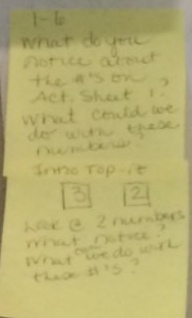 1-6
What do you
notice about
the #'s on
Act. Sheet 1?
What could we
do with these
numbers
Intro Top-it
3 2
Look @ 2 numbers
What notice?
What can we do with
these #'s?